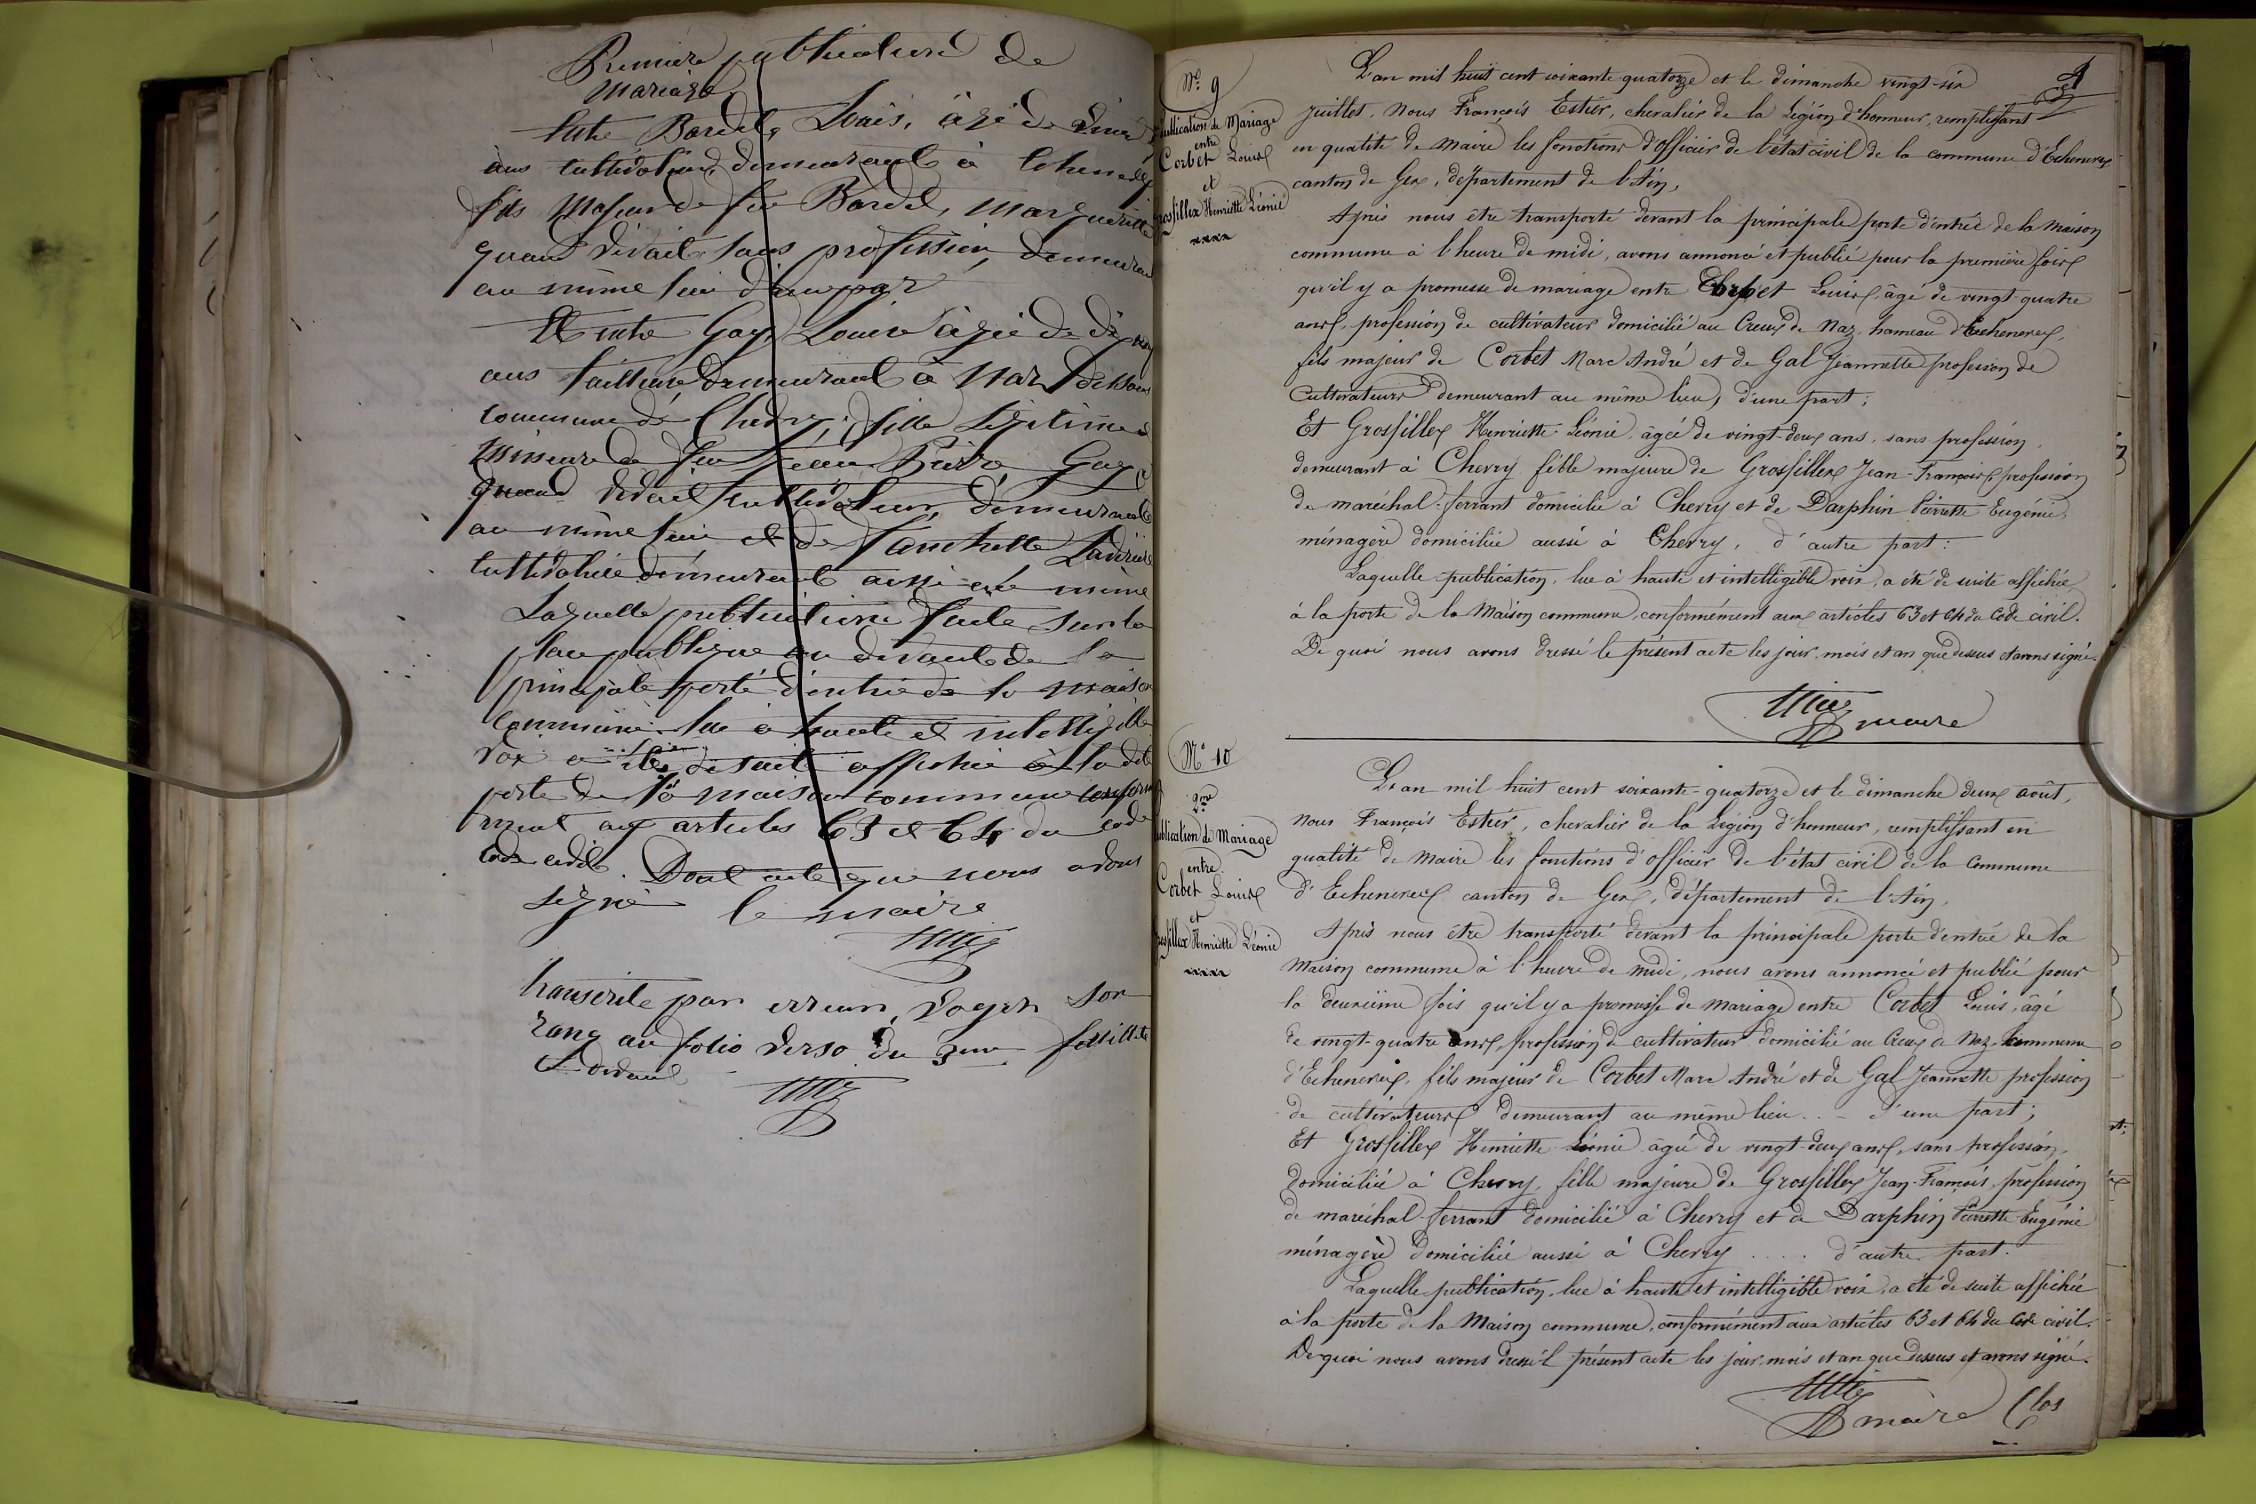 Premiere publication de
mariage
Entre Bordet, Louis, âgé de
ans cultivateur, demeurant à Echenevex
fils majeur de feu Bordet, Marguerite
quand vivait sans profession, demeurant
au même lieu d'une part
Et entre Gay, Louise âgée de
ans tailleuse demeurant à Naz dessous
commune de Chevry, fille légitime
mineure de feu Jean Pierre Gay
quand vivait cultivateur, demeurant
au même lieu et de
cultivatrice demeurant aussi au même
Laquelle publication faite sur la
place publique au devant de la
principale porte d'entrée de la maison
commune. lue à haute et intelligible
voix a été de suite affichée à la dite
porte de la maison commune
aux articles 63 et 64 du code
code civil. Dont acte que nous avons
signé le maire
transcrite par erreur, voyez son
rang au folio verso du 3eme feuillet
ci-devant
No. 9
Publication de Mariage
entre
Corbet Louis
et
Grosfillex Henriette Léonie
4
L'an mil huit cent soixante quatorze et le dimanche vingt-six
juillet, Nous François Estier, chevalier de la Légion d'honneur, remplissant
en qualité de maire les fonctions d'officier de l'état civil de la commune d'Echenevex
canton de Gex, département de l'Ain,
Après nous être transporté devant la principale porte d'entrée de la Maison
commune à l'heure de midi, avons annoncé et publié pour la première fois
qu'il y a promesse de mariage entre Corbet Louis, âgé de vingt-quatre
ans, profession de cultivateur domicilié au Creux de Naz, hameau d'Echenevex,
fils majeur de Corbet Marc André et de Gal Jeannette profession de
Cultivateurs demeurant au même lieu, d'une part;
Et Grosfillex Henriette Léonie, âgée de vingt-deux ans, sans profession,
demeurant à Chevry fille majeure de Grosfillex Jean-François, profession
de maréchal-ferrant domicilié à Chevry et de Darphin Pierrette Eugénie,
ménagère domiciliée aussi à Chevry, d'autre part:
Laquelle publication, lue à haute et intelligible voix, a été de suite affichée
à la porte de la Maison commune, conformément aux articles 63 et 64 du Code civil.
De quoi nous avons dressé le présent acte les jour, mois et an que dessus et avons signé.
maire
No 10
2me
Publication de Mariage
entre
Corbet Louis
et
Grosfillex Henriette Léonie
L'an mil huit cent soixante-quatorze et le dimanche deux août,
Nous François Estier, chevalier de la Légion d'honneur, remplissant en
qualité de Maire les fonctions d'officier de l'état civil de la Commune
d'Echenevex canton de Gex, département de l'Ain,
Après nous être transporté devant la principale porte d'entrée de la
Maison commune à l'heure de midi, nous avons annoncé et publié pour
la deuxième fois qu'il y a promesse de mariage entre Corbet Louis, âgé
de vingt-quatre ans, profession de cultivateur domicilié au Creux de Naz, commune
d'Echenevex, fils majeur de Corbet Marc André et de Gal Jeannette profession
de cultivateurs demeurant au même lieu.. - d'une part;
Et Grosfillex Henriette Léonie âgée de vingt-deux ans, sans profession,
domiciliée à Chevry, fille majeure de Grosfillex Jean-François, profession
de maréchal-ferrant domicilié à Chevry et de Darphin Pierrette Eugénie
ménagère domiciliée aussi à Chevry .... d'autre part.
Laquelle publication, lue à haute et intelligible voix, a été de suite affichée
à la porte de la Maison commune, conformément aux articles 63 et 64 du Code civil.
De quoi nous avons dressé l présent acte les jour, mois et an que dessus et avons signé.
maire Clos